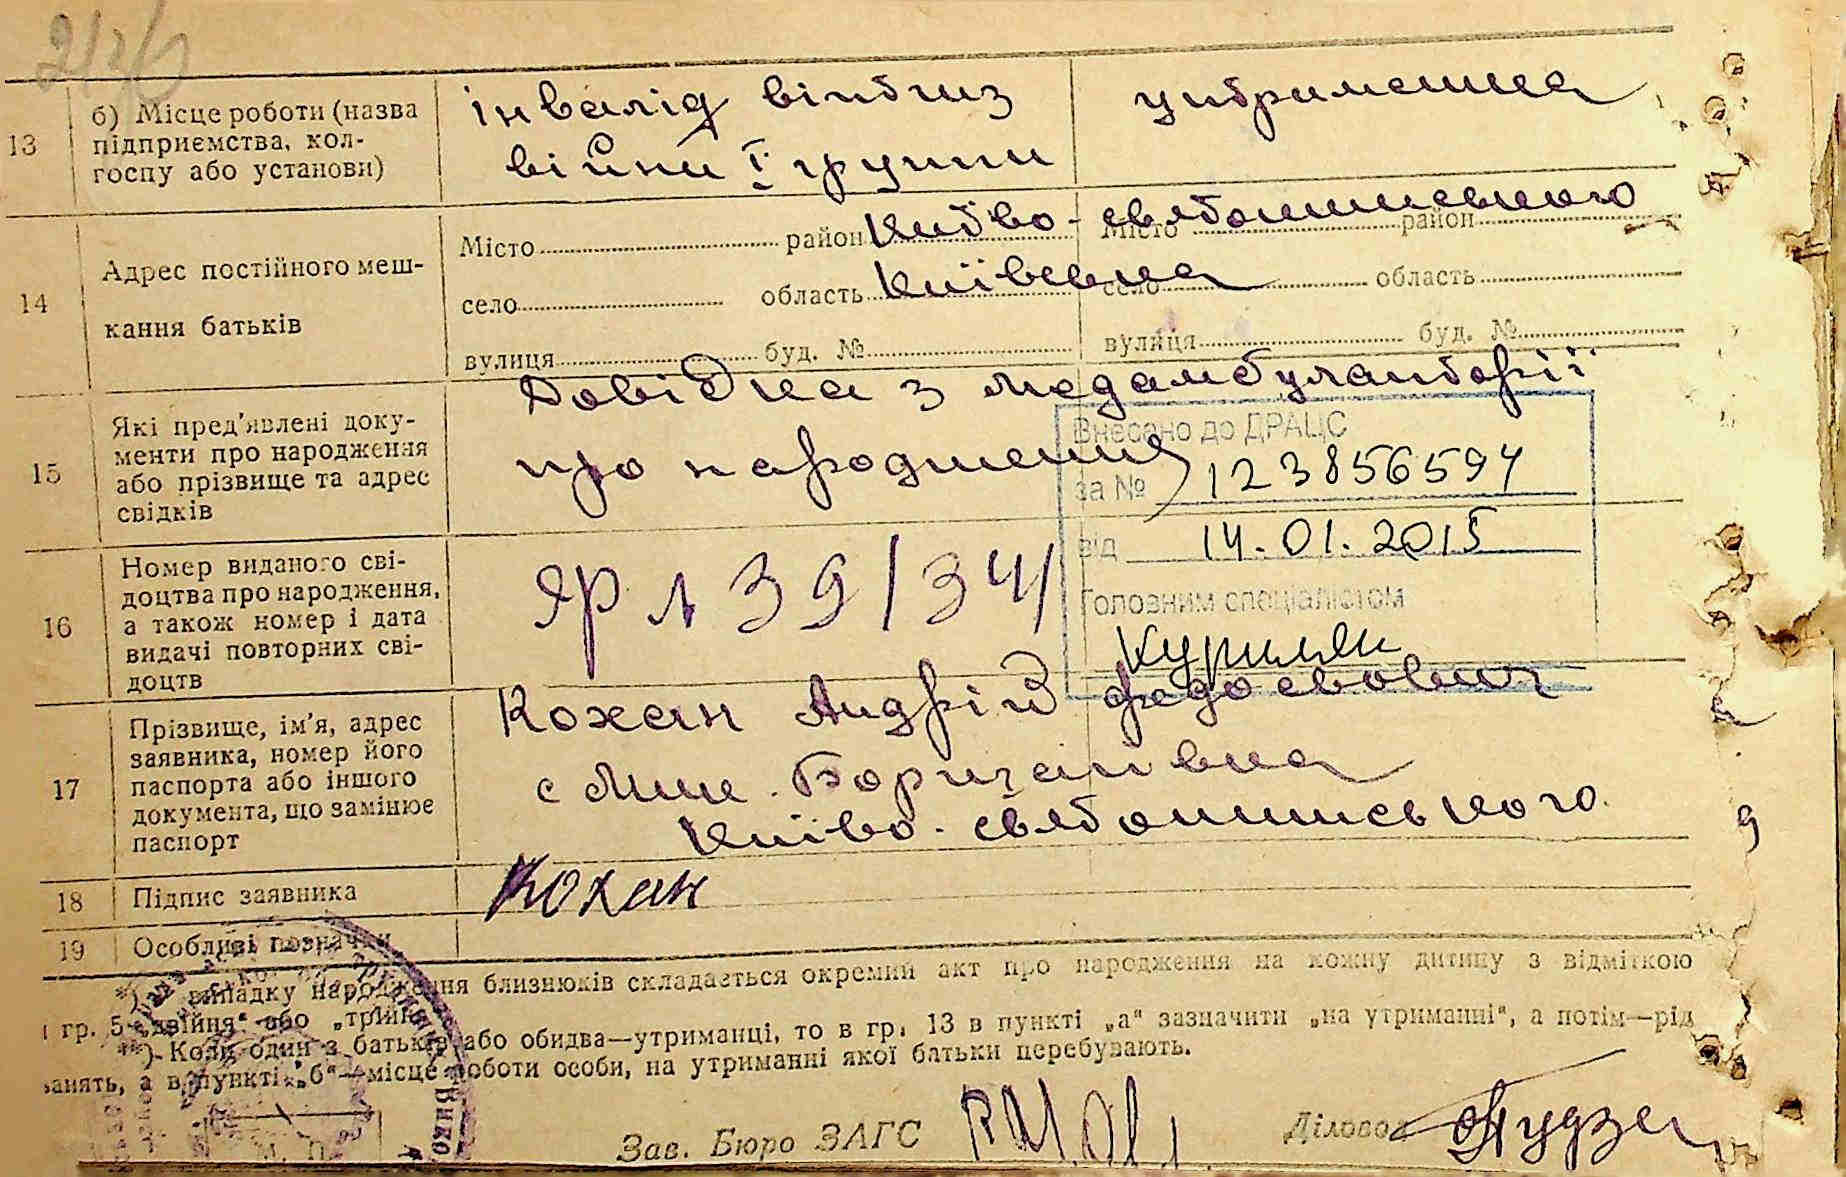 13
б) Місце роботи (назва
підприємства, кол-
госпу або установи)
інвалід вітчиз
війни І групи
утриманка
14
Адрес постійного меш-
кання батьків
Місто район Києво-Святошинського Місто район
село область Київська село область
вулиця буд. № вулиця буд. №
15
Які пред'явлені доку-
менти про народження
або прізвище та адрес
свідків
Довідка з медамбулаторії
про народження
Внесано до ДРАЦС
за № 1238856594
від 14.01.2015
Головним спеціалістом
Куриляк
16
Номер виданого сві-
доцтва про народження,
а також номер і дата
видачі повторних сві-
доцтв
17
Прізвище, ім'я, адрес
заявника, номер його
паспорта або іншого
документа, що замінює
паспорт
Кохан Андрій Федосьович
Києво-Святошинського
18
Підпис заявника
Кохан
19
Особливі позначки
*) випадку народження близнюків складається окремий акт про народження на кожну дитину з відміткою
гр. 5 „двійня“ або „трійня“
**) Коли один з батьків або обидва—утриманці, то в гр. 13 в пункті „а“ зазначити „на утриманні“, а потім—рід
занять, а в пункті „б“—місце роботи особи, на утриманні якої батьки перебувають.
М. П.
Зав. Бюро ЗАГС
Діловод